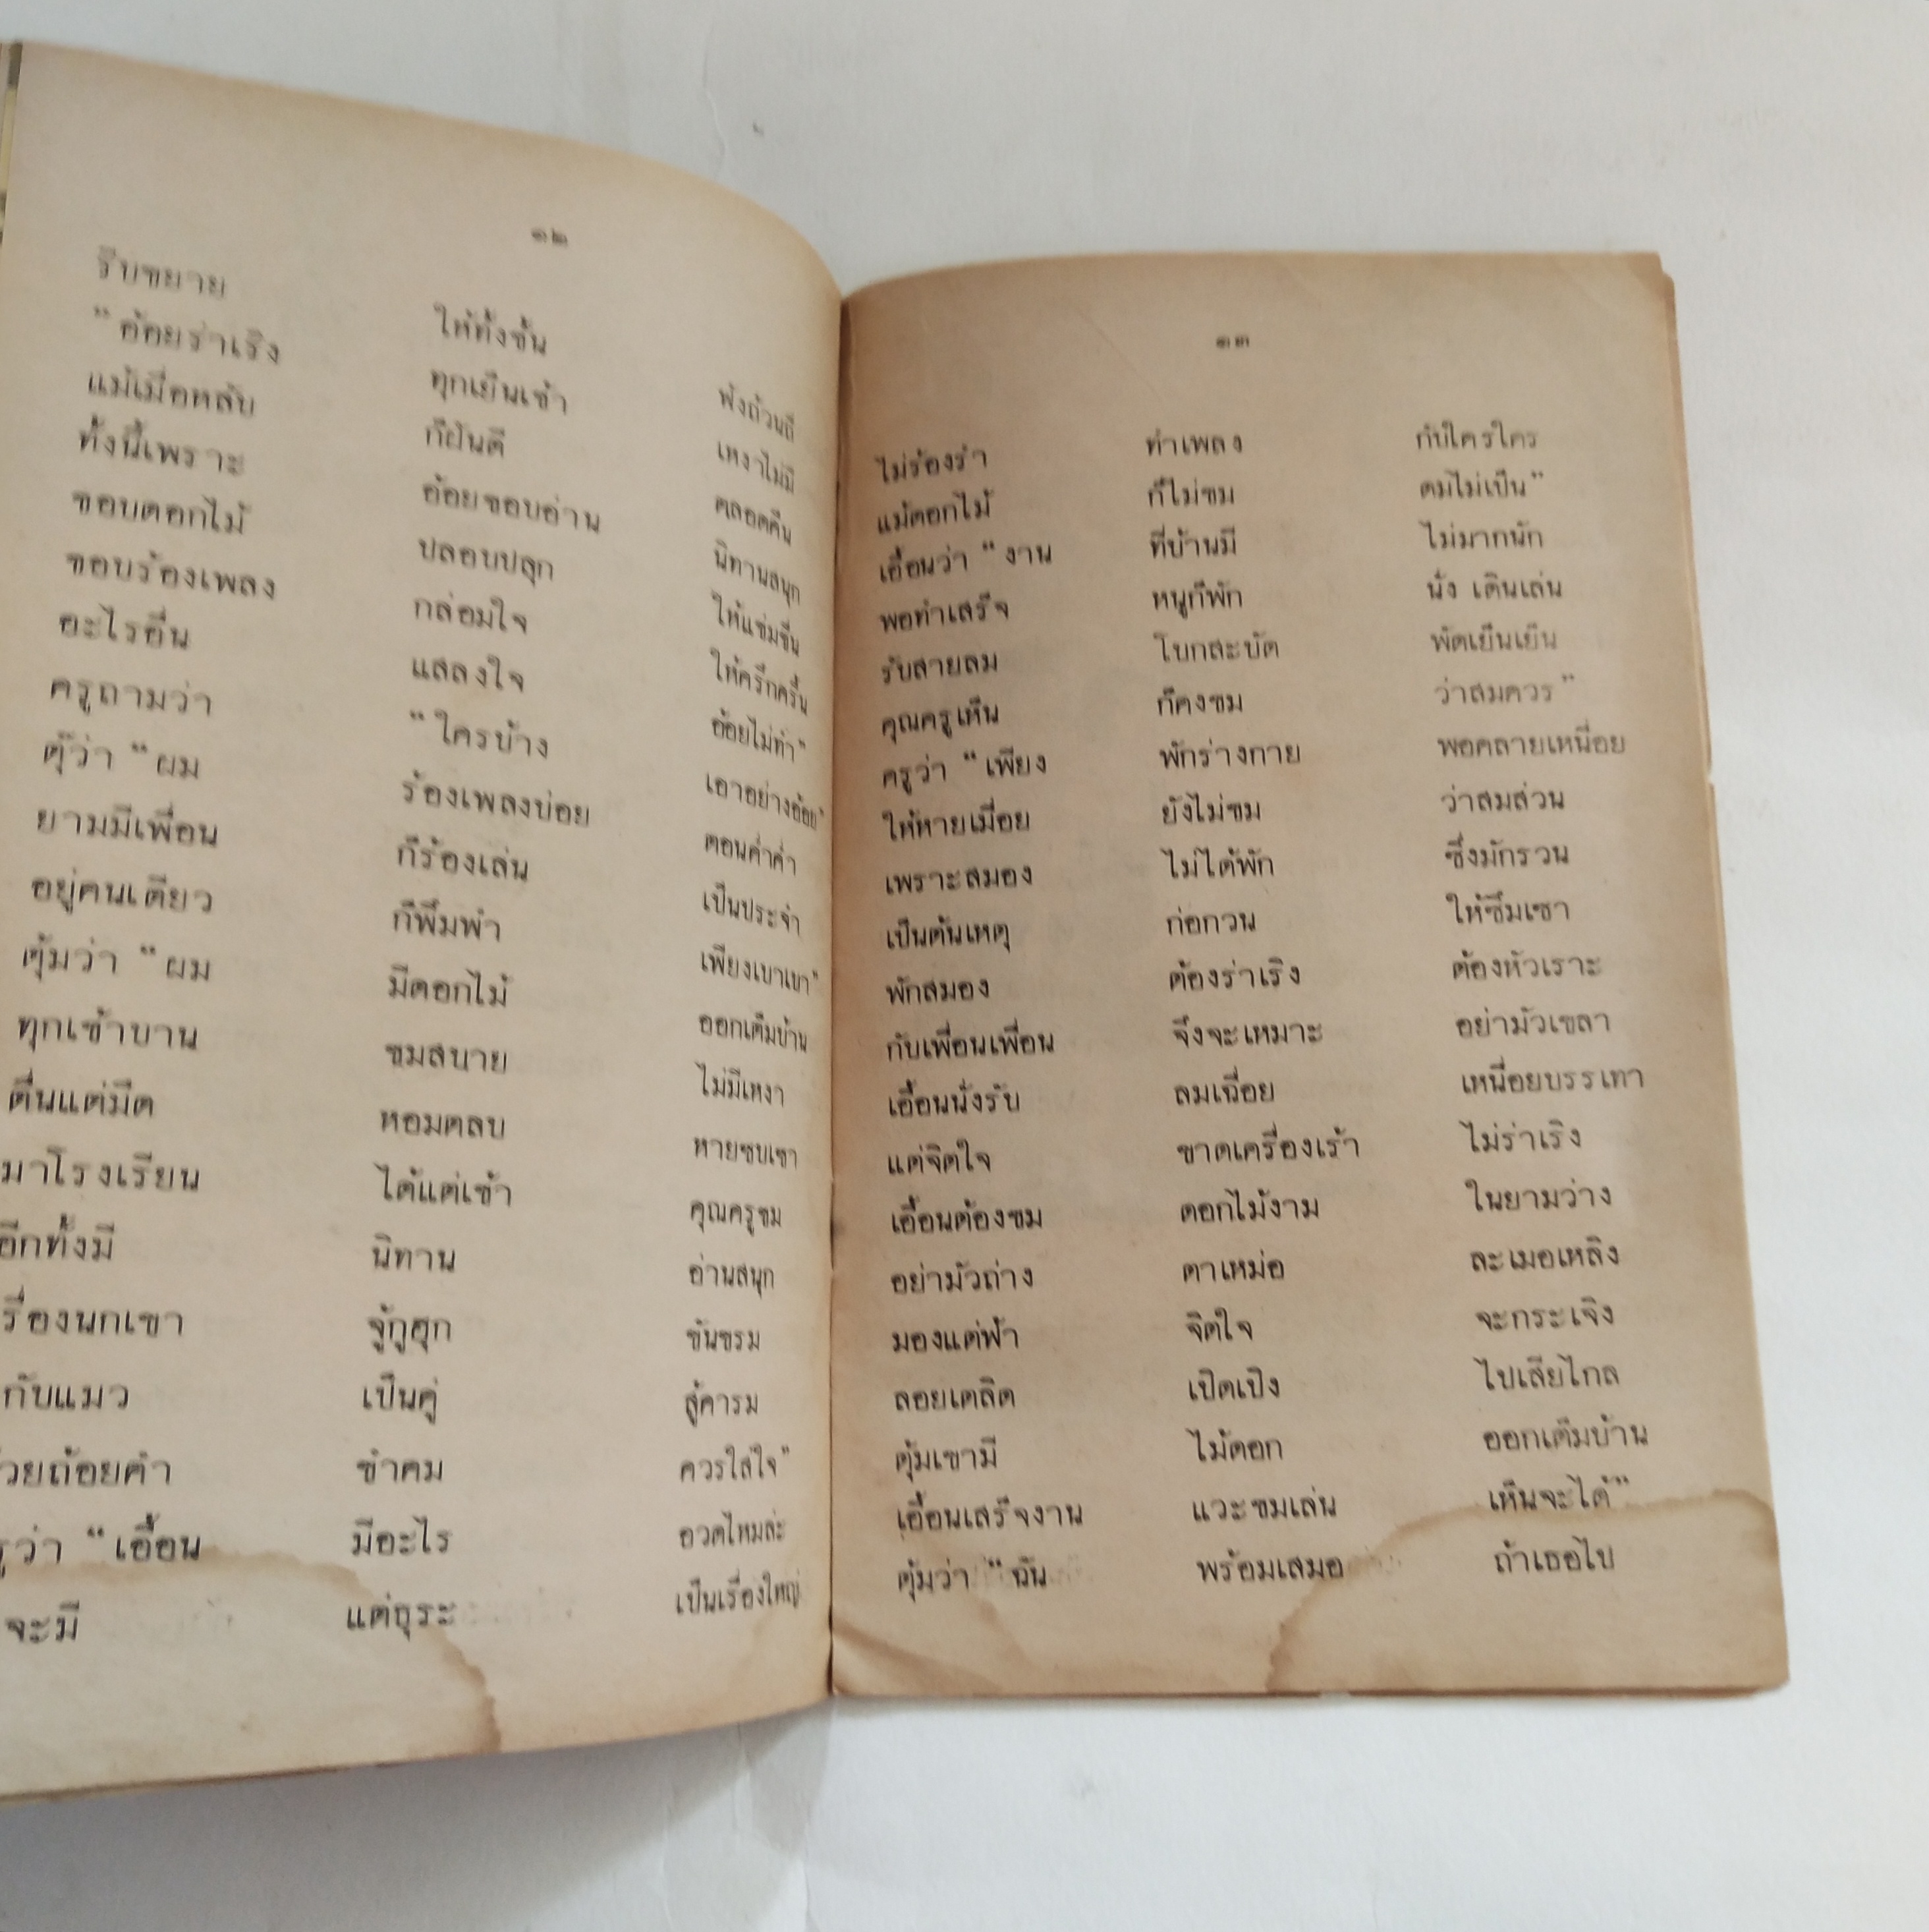 ๑๒
รีบขยาย ให้ทั้งชั้น ฟังถ้วนถี่
"อ้อยร่าเริง ทุกเย็นเช้า เหงาไม่มี
แม้เมื่อหลับ ก็ฝันดี ตลอดคืน
ทั้งนี้เพราะ อ้อยชอบอ่าน นิทานสนุก
ชอบดอกไม้ ปลอบปลุก ให้แช่มชื่น
ชอบร้องเพลง กล่อมใจ ให้ครึกครื้น
อะไรอื่น แสลงใจ อ้อยไม่ทำ"
ครูถามว่า "ใครบ้าง เอาอย่างอ้อย"
ตุ๊ว่า "ผม ร้องเพลงบ่อย ตอนค่ำค่ำ
ยามมีเพื่อน ก็ร้องเล่น เป็นประจำ
อยู่คนเดียว ก็พึมพำ เพียงเบาเบา"
ตุ้มว่า "ผม มีดอกไม้ ออกเต็มบ้าน
ทุกเช้าบาน ชมสบาย ไม่มีเหงา
ตื่นแต่มืด หอมตลบ หายซบเซา
มาโรงเรียน ได้แต่เช้า คุณครูชม
อีกทั้งมี นิทาน อ่านสนุก
รื่องนกเขา จู้กูฮุก ขันขรม
กับแมว เป็นคู่ สู้คารม
วยถ้อยคำ ขำคม ควรใส่ใจ"
รูว่า "เอื้อน มีอะไร อวดไหมล่ะ
จะมี แต่ธุระ เป็นเรื่องใหญ่
๑๓
ไม่ร้องรำ ทำเพลง กับใครใคร
แม้ดอกไม้ ก็ไม่ชม ดมไม่เป็น"
เอื้อนว่า "งาน ที่บ้านมี ไม่มากนัก
พอทำเสร็จ หนูก็พัก นั่ง เดินเล่น
รับสายลม โบกสะบัด พัดเย็นเย็น
คุณครูเห็น ก็คงชม ว่าสมควร"
ครูว่า "เพียง พักร่างกาย พอคลายเหนื่อย
ให้หายเมื่อย ยังไม่ชม ว่าสมส่วน
เพราะสมอง ไม่ได้พัก ซึ่งมักรวน
เป็นต้นเหตุ ก่อกวน ให้ซึมเซา
พักสมอง ต้องร่าเริง ต้องหัวเราะ
กับเพื่อนเพื่อน จึงจะเหมาะ อย่ามัวเขลา
เอื้อนนั่งรับ ลมเฉื่อย เหนื่อยบรรเทา
แต่จิตใจ ขาดเครื่องเร้า ไม่ร่าเริง
เอื้อนต้องชม ดอกไม้งาม ในยามว่าง
อย่ามัวถ่าง ตาเหม่อ ละเมอเหลิง
มองแต่ฟ้า จิตใจ จะกระเจิง
ลอยเตลิด เปิดเปิง ไปเสียไกล
ตุ้มเขามี ไม้ดอก ออกเต็มบ้าน
เอื้อนเสร็จงาน แวะชมเล่น เห็นจะได้"
ตุ้มว่า "ฉัน พร้อมเสมอ ถ้าเธอไป